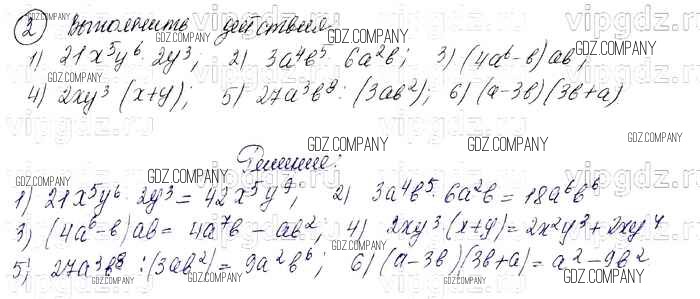 ② Выполнить действия:
1) 21x⁵y⁶ · 2y³; 2) 3a⁴b⁵ · 6a²b; 3) (4a⁶-b)ab;
4) 2xy³(x+y); 5) 27a³b⁸ : (3ab²); 6) (a-3b)(3b+a)
Решение:
1) 21x⁵y⁶ · 2y³ = 42x⁵y⁹; 2) 3a⁴b⁵ · 6a²b = 18a⁶b⁶
3) (4a⁶-b)ab = 4a⁷b - ab²; 4) 2xy³·(x+y) = 2x²y³ + 2xy⁴
5) 27a³b⁸ : (3ab²) = 9a²b⁶; 6) (a-3b)(3b+a) = a² - 9b²